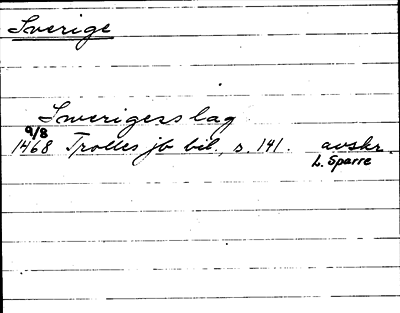 Sverige
Swerigess lag
9/8
1468 Trolles jb bil., s. 141. avskr.
L. Sparre